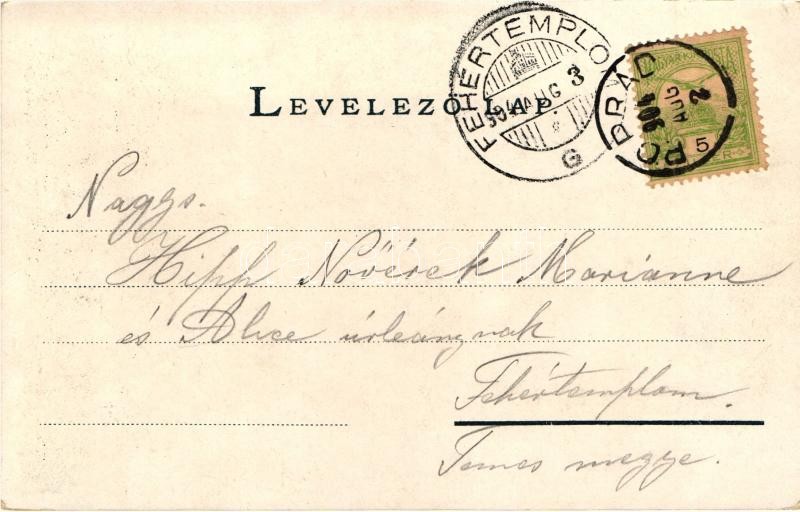 LEVELEZŐ-LAP
FEHÉRTEMPLOM
904 AUG 3
G
POPRÁD
904 AUG 2
MAGYAR KIR. POSTA
5
Nagys.
Hipp Nővérek Marianne
és Alice úrleánynak
Fehértemplom.
Temes megye.